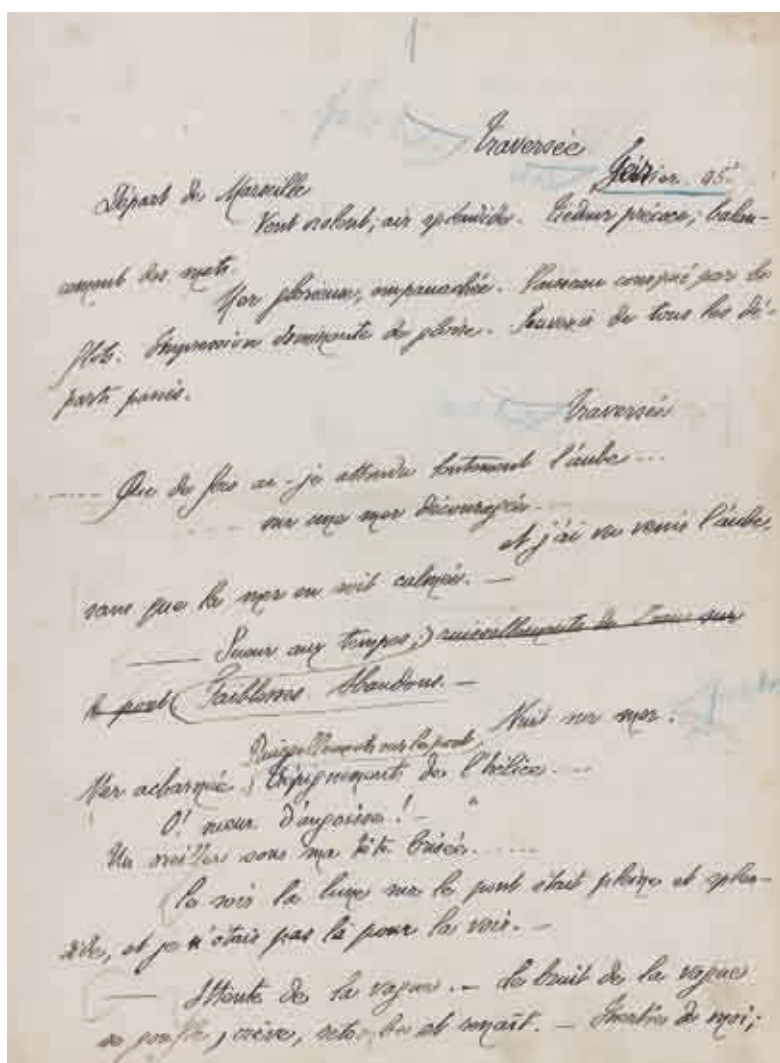 1
Traversée
Février 95
Départ de Marseille
Vent violent; air splendide. Tiédeur précoce; balan-
cement des mats.
Mer glorieuse, empanachée. Vaisseau conspué par les
flots. Impression dominante de gloire. Souvenir de tous les dé-
parts passés.
Traversée
..... Que de fois ai-je attendu l'aube...
... sur une mer découragée...
et j'ai vu venir l'aube,
sans que la mer en soit calmée. —
— Sueur aux tempes; ruissellements de l'eau sur
le pont Faiblesses. Abandons. —
Nuit sur mer.
Ruissellements sur le pont,
Mer acharnée; trépignements de l'hélice....
O! sueur d'angoisse! —
Un oreiller sous ma tête brisée......
Ce soir la lune sur le pont était pleine et splen-
dide, et je n'étais pas là pour la voir. —
— Attente de la vague. — Le bruit de la vague
se gonfle, crève, retombe et renaît. — Inertie de moi;